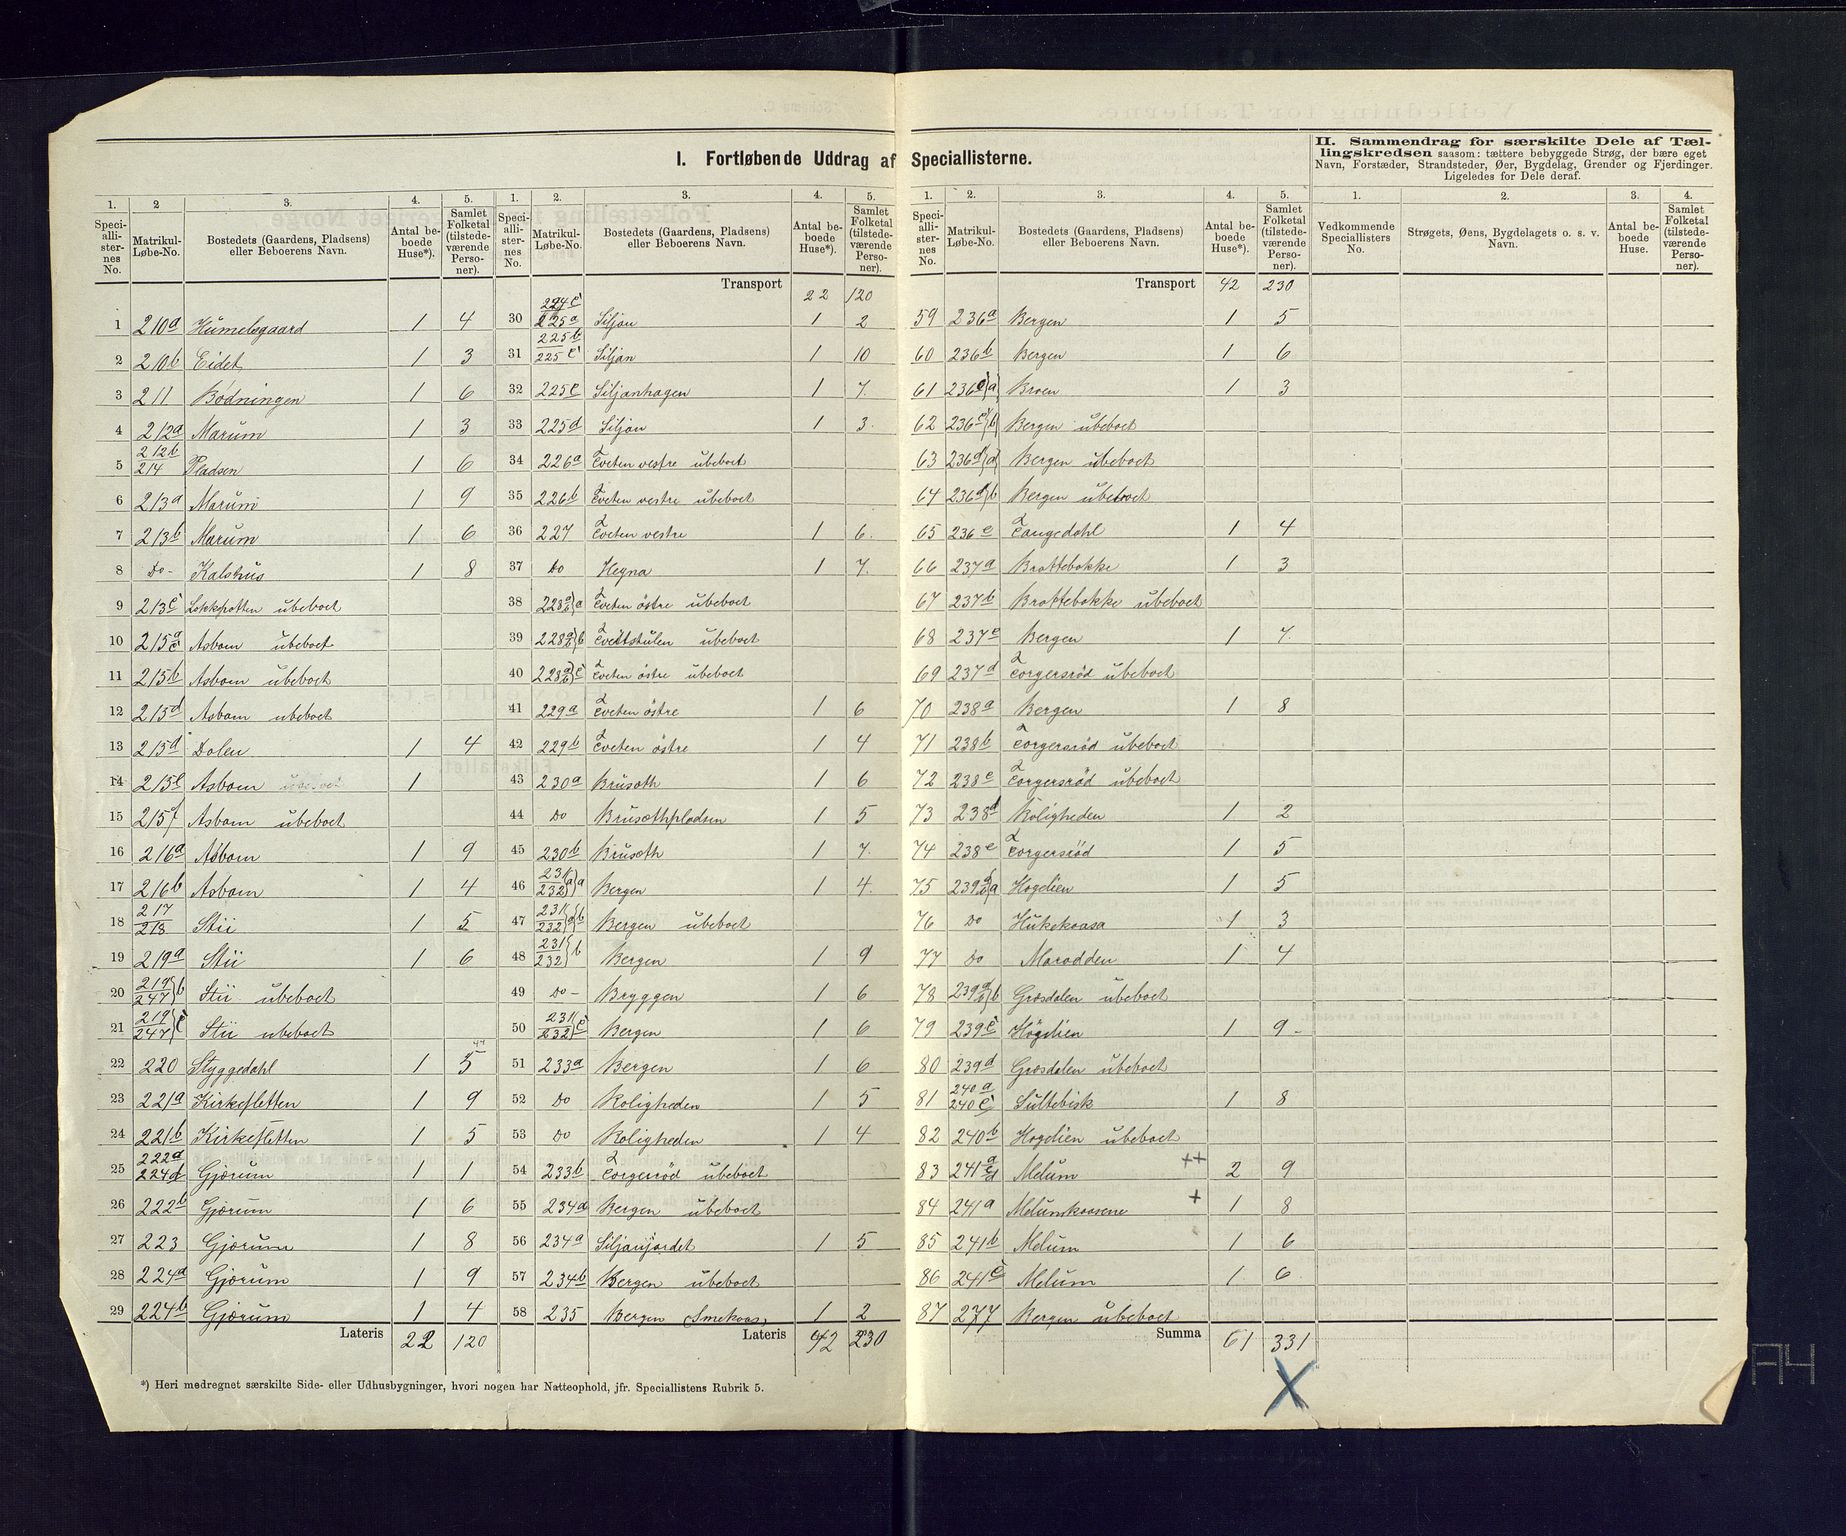 I. Fortløbende Uddrag af Speciallisterne.
II. Sammendrag for særskilte Dele af Tællingskredsen saasom: tættere bebyggede Strøg, der bære eget
Navn, Forstæder, Strandsteder, Øer, Bygdelag, Grender og Fjerdinger.
Ligeledes for Dele deraf.
1. 2 3. 4. 5.
Speciallisternes No. Matrikul-Løbe-No. Bostedets (Gaardens, Pladsen) eller Beboerens Navn. Antal beboede Huse*). Samlet Folketal (tilstedeværende Personer).
1 210a Humelsgaard 1 4
2 210b Eidet 1 3
3 211 Bødningen 1 6
4 212a Marum 1 3
5 212b 214 Pladsen 1 6
6 213a Marum 1 9
7 213b Marum 1 6
8 Do- Kalshus 1 8
9 213c ubeboet
10 215a c Asbom ubeboet
11 215b Asbom ubeboet
12 215d Asbom ubeboet
13 215d Dolen 1 4
14 215e Asbom ubeboet 1
15 215f Asbom ubeboet
16 216a Asbom 1 9
17 216b Asbom 1 4
18 217 218 Stii 1 5
19 219a Stii 1 6
20 219 247 } b Stii ubeboet
21 219 247 } c Stii ubeboet
22 220 Styggedahl 1 5
23 221a Kirkesletten 1 9
24 221b Kirkesletten 1 5
25 222a 224d Gjærum 1 1
26 222b Gjærum 1 6
27 223 Gjærum 1 8
28 224a Gjærum 1 9
29 224b Gjærum 1 4
Lateris 22 120
*) Heri medregnet særskilte Side- eller Udhusbygninger, hvori nogen har Natteophold, jfr. Speciallistens Rubrik 5.
1. 2. 3. 4. 5.
Speciallisternes No. Matrikul-Løbe-No. Bostedets (Gaardens, Pladsen) eller Beboerens Navn. Antal beboede Huse*). Samlet Folketal (tilstedeværende Personer).
Transport 22 120
30 224c 225a Siljan 1 2
31 225b 225c Siljan 1 10
32 225c Siljanhagen 1 7.
33 225d Siljan 1 3.
34 226a Tveten vestre ubeboet
35 226b Tveten vestre ubeboet
36 227 Tveten vestre 1 6.
37 Do Hegna 1 7.
38 228 a b } a Tveten östre ubeboet
39 228 a b } b Tveitstulen ubeboet
40 228 a b } c Tveten östre ubeboet
41 229a Tveten östre 1 6
42 229b Tveten östre 1 4
43 230a Brusæth 1 6
44 Do Brusæthpladsen 1 5
45 230b Brusæth 1 7.
46 231 232 } a } a Bergen 1 4.
47 231 232 } a } b Bergen ubeboet
48 231 232 } b Bergen 1 9
49 Do- Bryggen 1 6
50 231 232 } c Bergen 1 6
51 233a Bergen 1 6
52 Do Roligheden 1 5
53 Do Roligheden 1 4
54 233b Torgersröd ubeboet
55 234a Bergen ubeboet
56 234a Siljanjordet 1 5
57 234b Bergen ubeboet
58 235 Bergen (Smekaas) 1 2
Lateris 42 230
1. 2. 3. 4. 5.
Speciallisternes No. Matrikul-Løbe-No. Bostedets (Gaardens, Pladsen) eller Beboerens Navn. Antal beboede Huse*). Samlet Folketal (tilstedeværende Personer).
Transport 42 230
59 236a Bergen 1 5
60 236b Bergen 1 6
61 236c } a Broen 1 3
62 236c } b Bergen ubeboet
63 236d } a Bergen ubeboet
64 236d } b Bergen ubeboet
65 236e Tangedahl 1 4
66 237a Brattebakke 1 3
67 237b Brattebakke ubeboet
68 237c Bergen 1 7.
69 237d Torgersröd ubeboet
70 238a Bergen 1 8
71 238b Torgersröd ubeboet
72 238c Torgersröd ubeboet
73 238d Roligheden 1 2
74 238e Torgersröd 1 5
75 239 a b } a Hogdien 1 5
76 Do Hukekaasa 1 3
77 Do Marodden 1 4
78 239 a b } b Græsdalen ubeboet
79 239c Högdien 1 9 -
80 239d Græsdalen ubeboet
81 240a 240c Sultebisk 1 8
82 240b Hogdien ubeboet
83 241 a d Melum ++ 2 9
84 241a Melumkaasene + 1 8
85 241b Melum 1 6
86 241c Melum 1 6
87 277 Bergen ubeboet
Summa 61 331
X
1. 2. 3. 4.
Vedkommende Speciallisters No. Strøgets, Øens, Bygdelagets o. s. v. Navn. Antal beboede Huse. Samlet Folketal (tilstedeværende Personer).